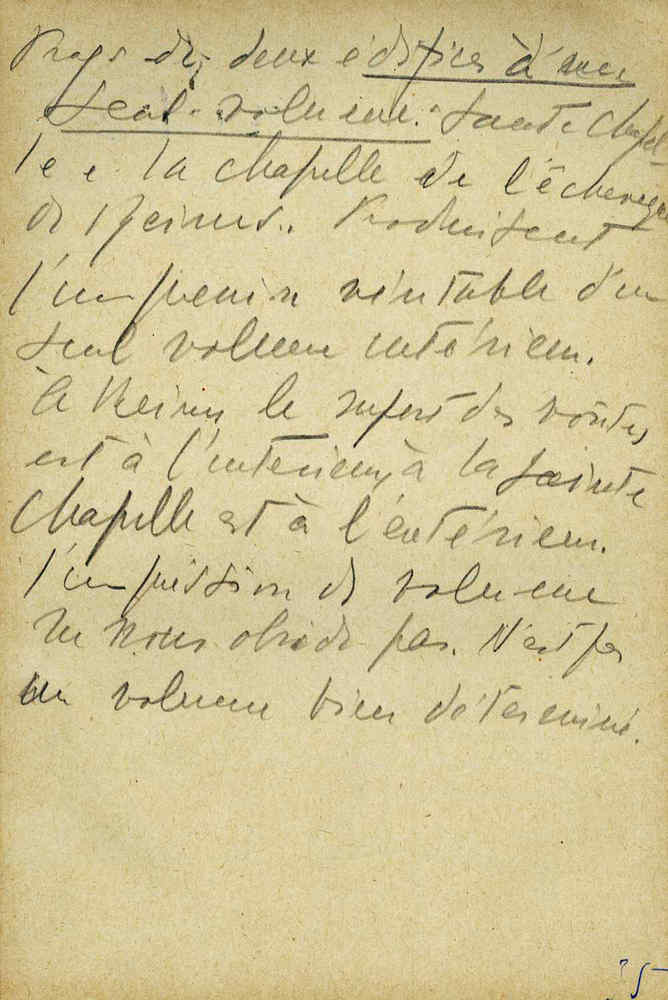 des deux édifices à un
seul volume. Sainte Chapel-
le e la chapelle de l'échevé
de Reims. Produisent
l'impression véritable d'un
seul volume intérieur.
à Reims le suport des voûtes
est à l'intérieur, à la Sainte
Chapelle est à l'extérieur.
l'impréssion de volume
ne nous obséde pas. N'est pas
un volume bien déterminé.
35